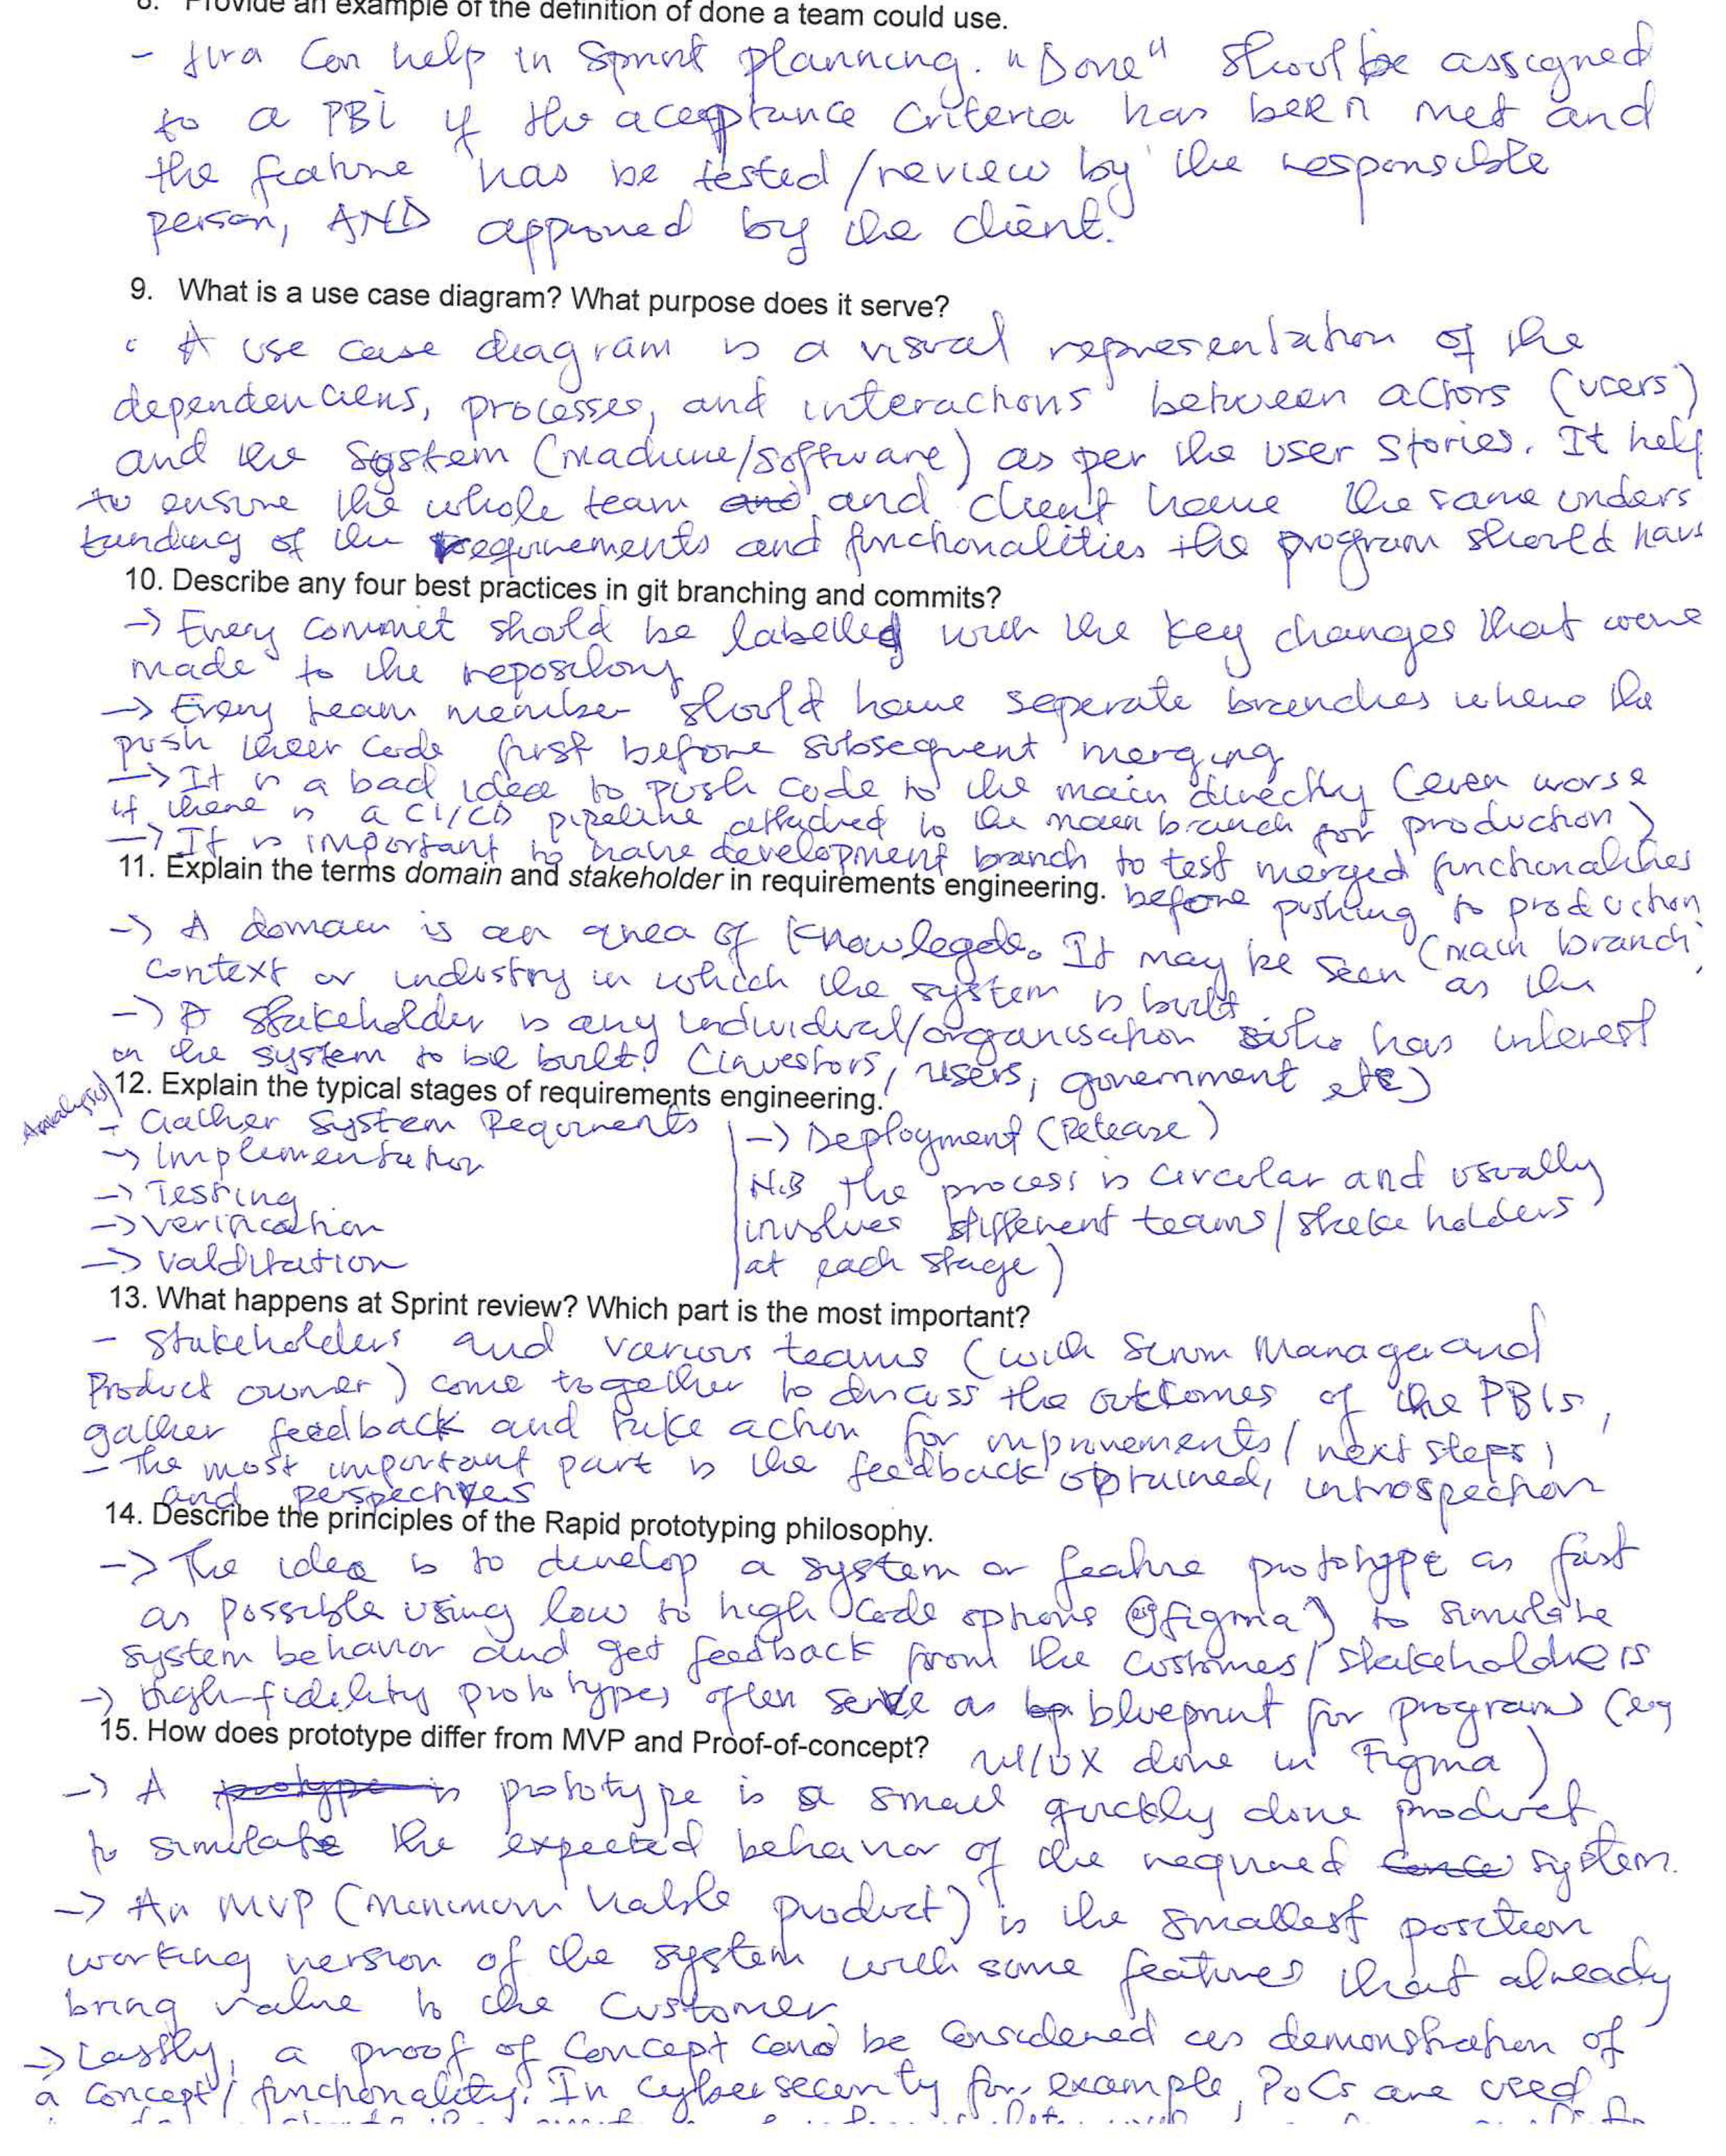 8. Provide an example of the definition of done a team could use.
- Jira Can help in Sprint planning. "Done" Shoul be assigned
to a PBI if the acceptance Criteria has been met and
the feature has be tested/review by the responsible
person, AND approved by the client.
9. What is a use case diagram? What purpose does it serve?
A use case diagram is a visual representation of the
dependenciens, processes, and interactions between actors (users)
and the System (machine/software) as per the user stories. It help
to ensure the whole team and and client have the same unders
tanding of the requirements and functionalities the program should have
10. Describe any four best practices in git branching and commits?
-> Every commit should be labelled with the key changes that were
made to the repository
-> Every team member should have seperate branches where the
push their code first before subsequent merging
-> It is a bad idea to push code to the main directly (even worse
if there is a CI/CD pipeline attached to the main branch for production)
-> It is important to have development branch to test merged functionalities
11. Explain the terms domain and stakeholder in requirements engineering.
before pushing to production
(main branch)
-> A domain is an area of knowlegde. It may be seen as the
context or industry in which the system is built
-> A stakeholder is any individual/organisation who has interest
in the system to be built. (investors, users, government etc)
12. Explain the typical stages of requirements engineering.
Analysis)
- Gather System Requirments
-> Implementation
-> Testing
-> Verification
-> Valditation
-> Deployment (Release)
N.B The process is circular and usually
involves different teams/stakeholders
at each stage)
13. What happens at Sprint review? Which part is the most important?
- Stakeholders and various teams (with Scrum Manager and
Product owner) come together to discuss the outcomes of the PBIs,
gather feedback and take action for improvements/next steps,
- The most important part is the feedback obtained, introspection
and perspectives
14. Describe the principles of the Rapid prototyping philosophy.
-> The idea is to develop a system or feature prototype as fast
as possible using low to high code options (eg figma) to simulate
system behavior and get feedback from the customers/stakeholders
-> high-fidelity prototypes often serve as blueprint for programs (eg
UI/UX done in Figma)
15. How does prototype differ from MVP and Proof-of-concept?
-> A protype is prototype is a small quickly done product
to simulate the expected behavior of the required system.
-> An MVP (Minimum Viable product) is the smallest
working version of the system with some features that already
bring value to the Customer.
-> Lastly, a proof of Concept be considered as demonstration of
a concept/functionality. In Cybersecurity for example, PoCs are used